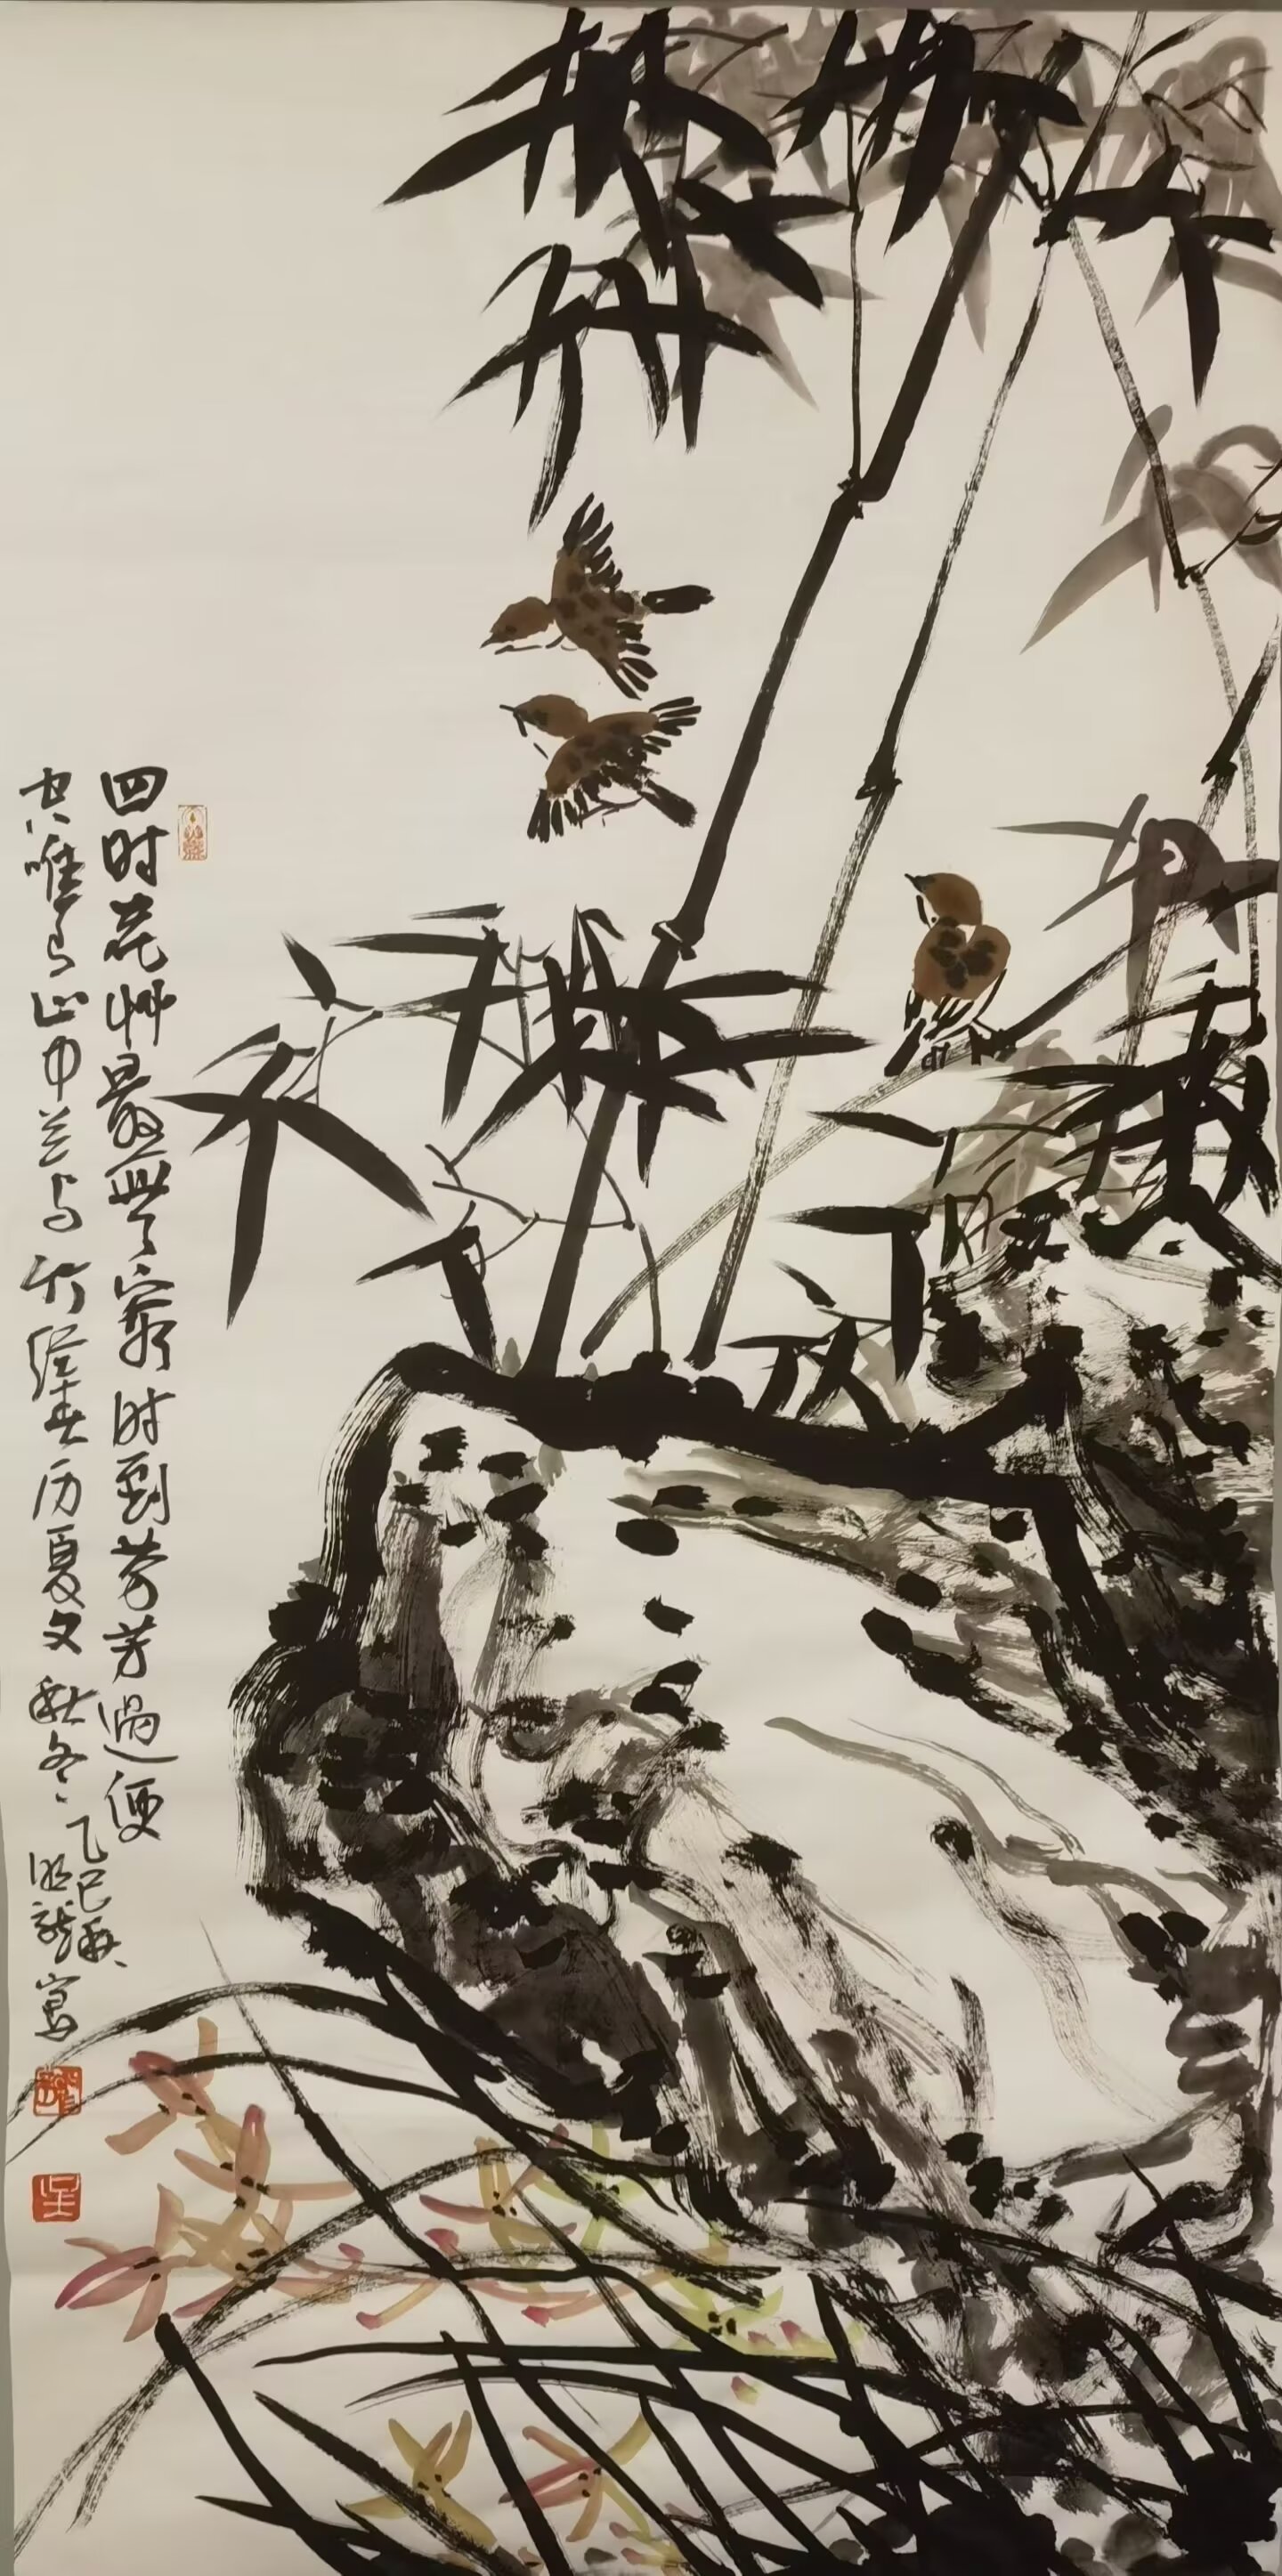 四时花草最无穷时到芬芳过便
空唯有山中兰与竹经春历夏又秋冬
乙巳秋
明龙写